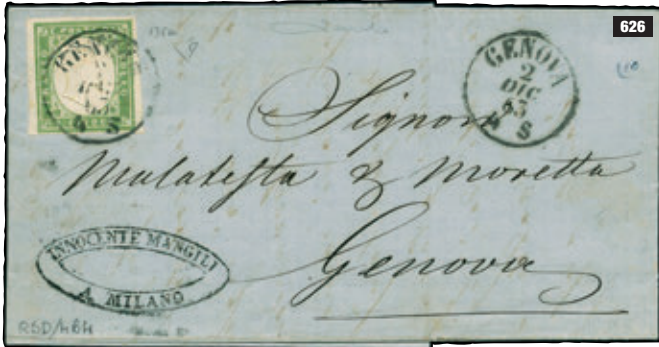 626
GENOVA
2
DIC
63
4 S
Signori
Malatesta & Moretta
Genova
INNOCENTE MANGILI
A MILANO
RSD/HBH